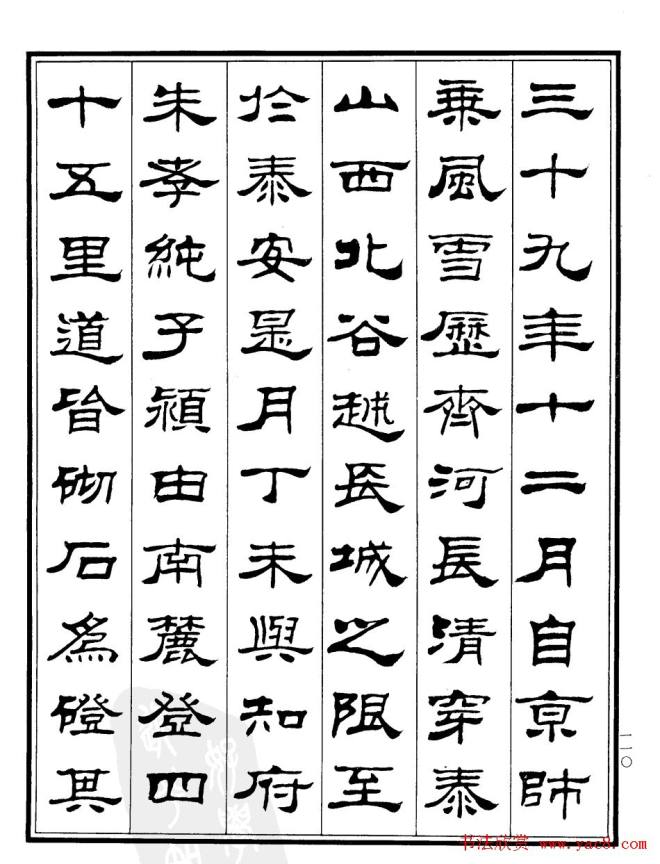 三十九年十二月自京師
乗風雪歷齊河長清穿泰
山西北谷越長城之限至
於泰安是月丁未與知府
朱孝純子潁由南麓登四
十五里道皆砌石為磴其
一一〇
书法欣赏 www.yac8.com